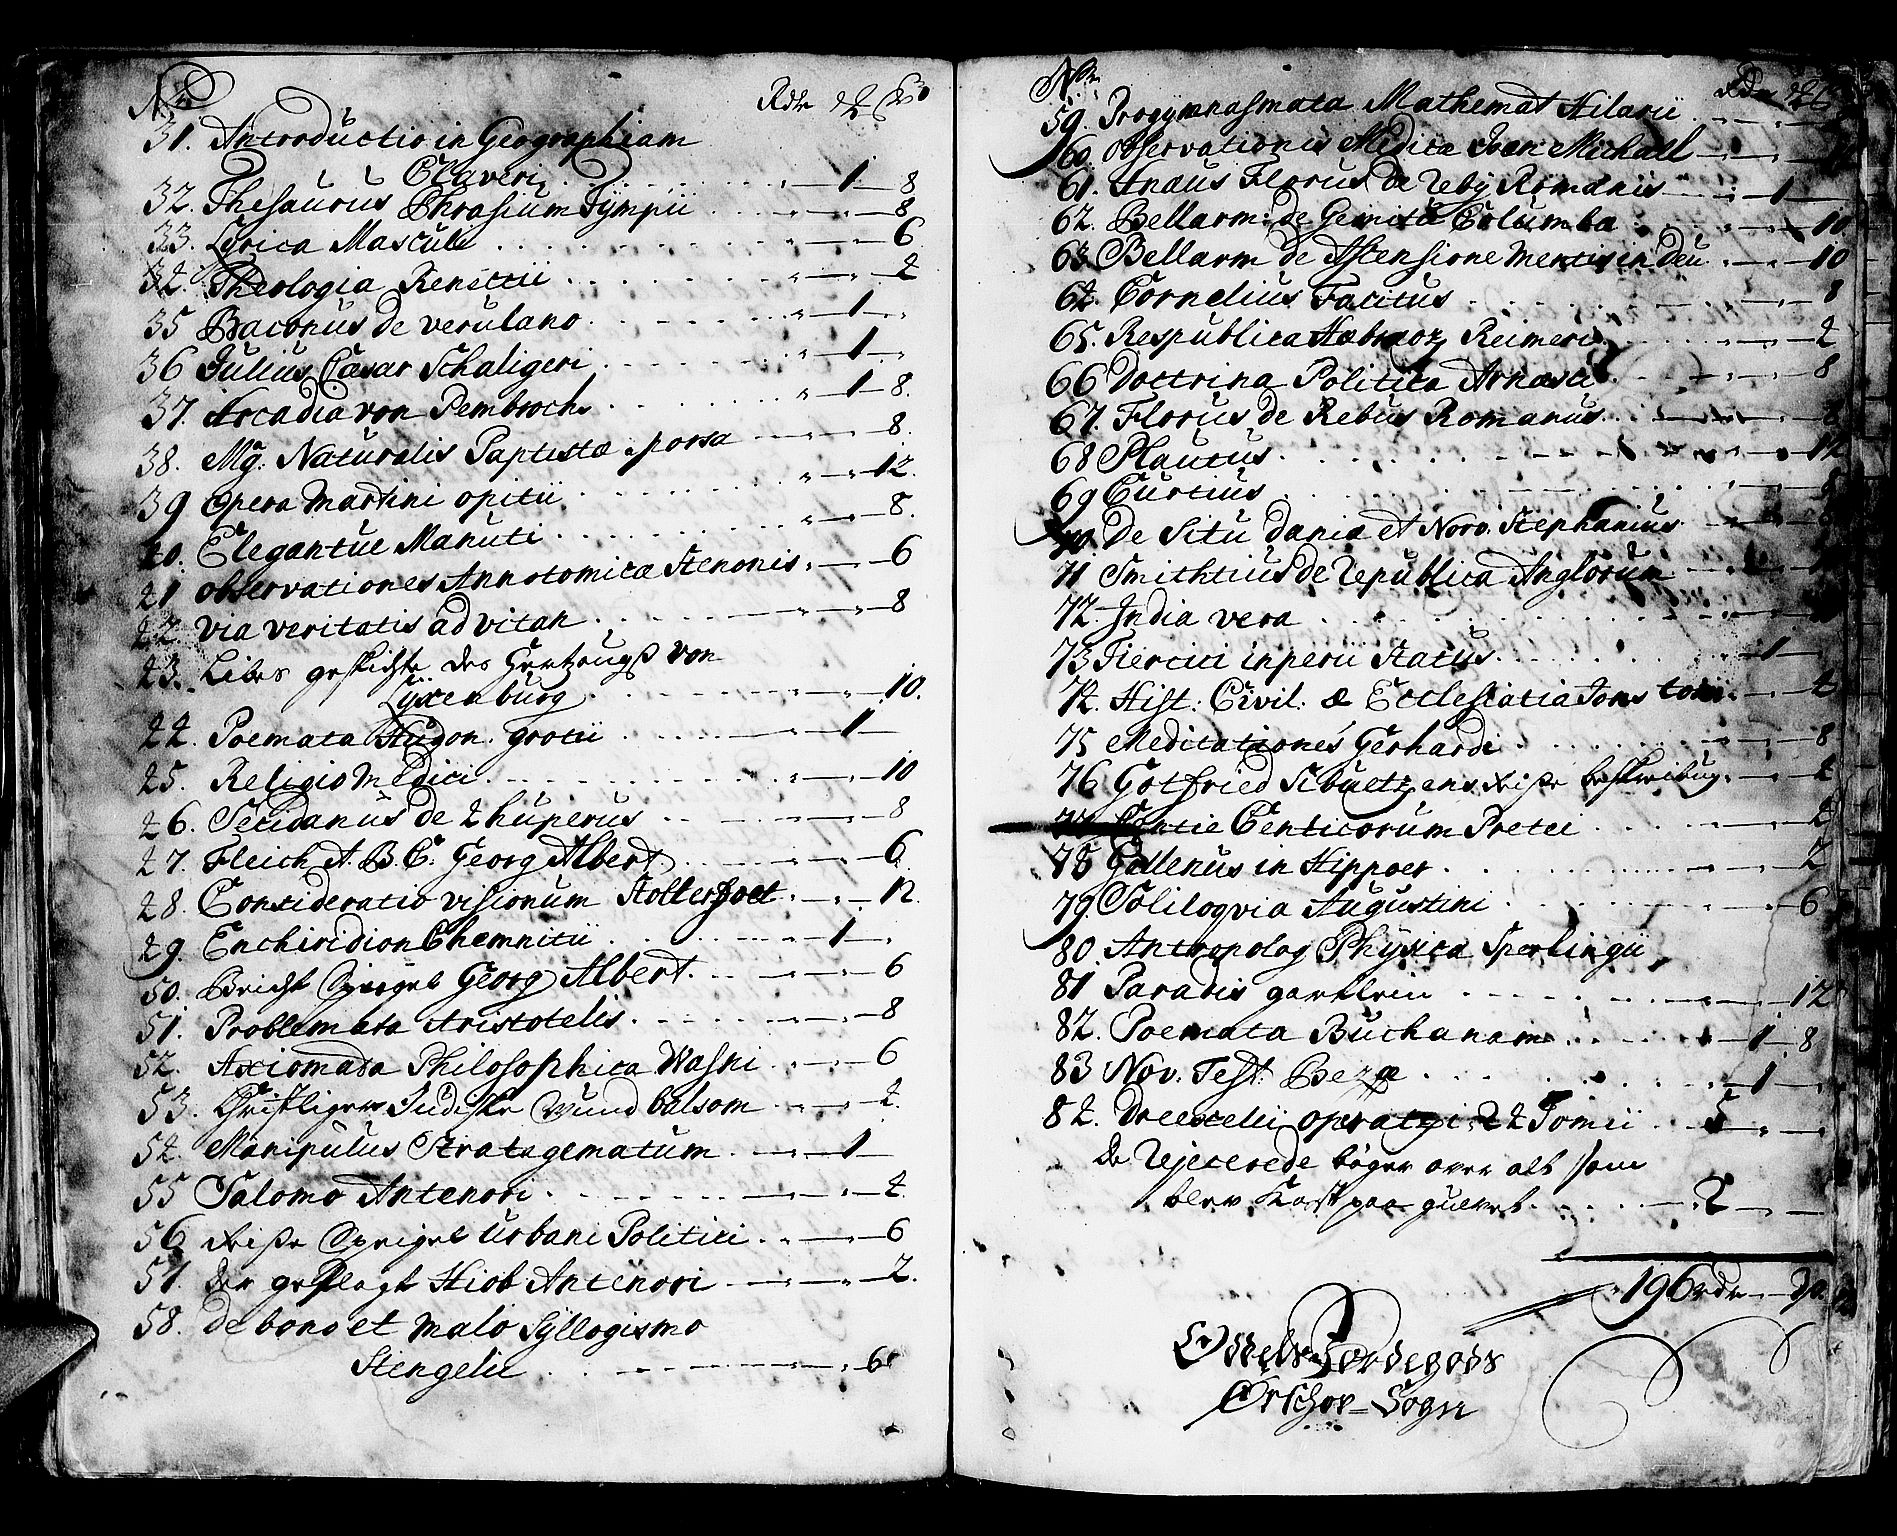 No Rdr ort ß
31. Introductio in Geographiam
Claveri . . . 1 8
32. Thesaurus Phrasium Tÿmpii . . . 8
33. Lyrica Masculi . . . 6
34 Theologia Renettii . . . 4
35 Baconus de verulano . . . 1
36 Julius Cæsar Schaligeri . . . 1
37. Arcadia von Pembroch . . . 1 8.
38. Mg: Naturalis Paptistæ porsa . . . 8.
39 Opera Martini opitii . . . 12.
40. Elegantiæ Manuti . . . 8.
41 observationes Annotomicæ Stenonis . . . 6
42 via veritatis ad vitam . . . 8
43. Libes geschichte des Hertzougß von
Lÿxenburg . . . 10.
44. Poemata Hugon. grotii . . . 1
45. Religio Medici . . . 10
46. Secidanus de 4 huperus . . . 8
47. Fleich A. B. C. Georg Albert . . . 6
48. Consideratio visionum Stolterfoet . . . 12
49. Enchiridion Chemnitii . . . 1
50. Beicht Spiegel Georg Albert . . . 6
51. Problemata Aristotelis . . . 8
52. Axiomata Philosophica Washi . . . 6
53. Christliger Judiske Wund balsom . . . 4.
54. Manipulus Stratagematum . . . 1
55 Salomo Antenori . . . 4.
56 Reiße Speigel Urbani Politici . . . 6
57. der geplagt Hiob Antenori . . . 2.
58. de bono et malo Syllogismo
Stengelii . . . 6
No Rdr
59. Progymnasmata Mathemat Hilarii
60. observationis Medica Joan Michaël
61. Undus Florus de reby Romanis . . . 1
62. Bellarm: de Gemitu Columba . . . 10
63 Bellarm de Astensione mentis in Deu . . . 10
64. Cornelius Tacitus . . . 8
65. Respublica Hæbræor Reimeri . . . 4
66 Doctrina Politica Arnæsei . . . 8
67. Florus de Rebus Romanus
68 Plautus . . . 12
69 Curtius . . . 8
70. De Situ daniæ et Norv. Stephanius
71 Smithtius de republica Anglorum
72. India vera
73 Tiercici inperii Status . . . 1
74. Hist: Civil: æ Ecclesiatia Jons tom . . . 4
75 Meditationes Gerhardi . . . 8
76 Gotfried Schultzens Reiße beskreibug . . . 4
77 Centicorum Pretei . . . 4
78 Gallenus in Hippocr . . . 2
79. Soliloqvia Augustini . . . 6
80. Antropolog Physica Sperlingii
81 Paradis gartlein . . . 12
82. Poemata Buchanam . . . 1 8
83 Nov. Test: Bezæ . . . 1
84. Drexelii opera i 24 Tomii . . . 5
De Rejecerede bøger over alt som
blev Kast paa gulvet . . . 2
196 rdr 20
Øvels Fierdegods
Ørschov Sogn